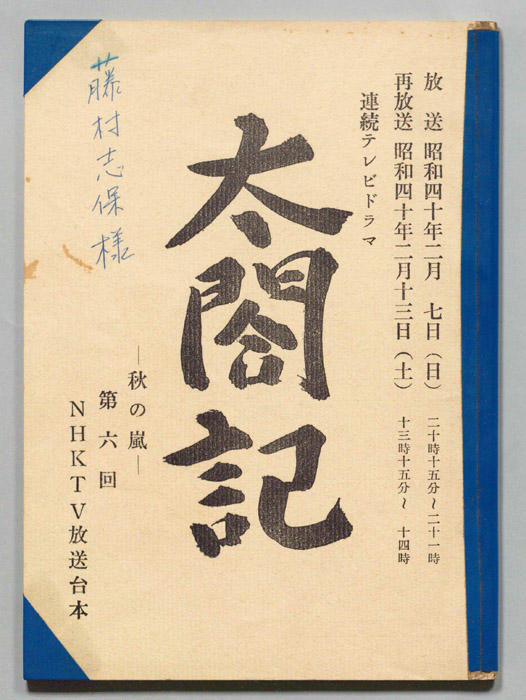 放　送　昭和四十年二月　七日（日）　二十時十五分〜二十一時
再放送　昭和四十年二月十三日（土）　十三時十五分〜　十四時
連続テレビドラマ
太閤記
―秋の嵐―
第六回
NHKTV放送台本
藤村志保様